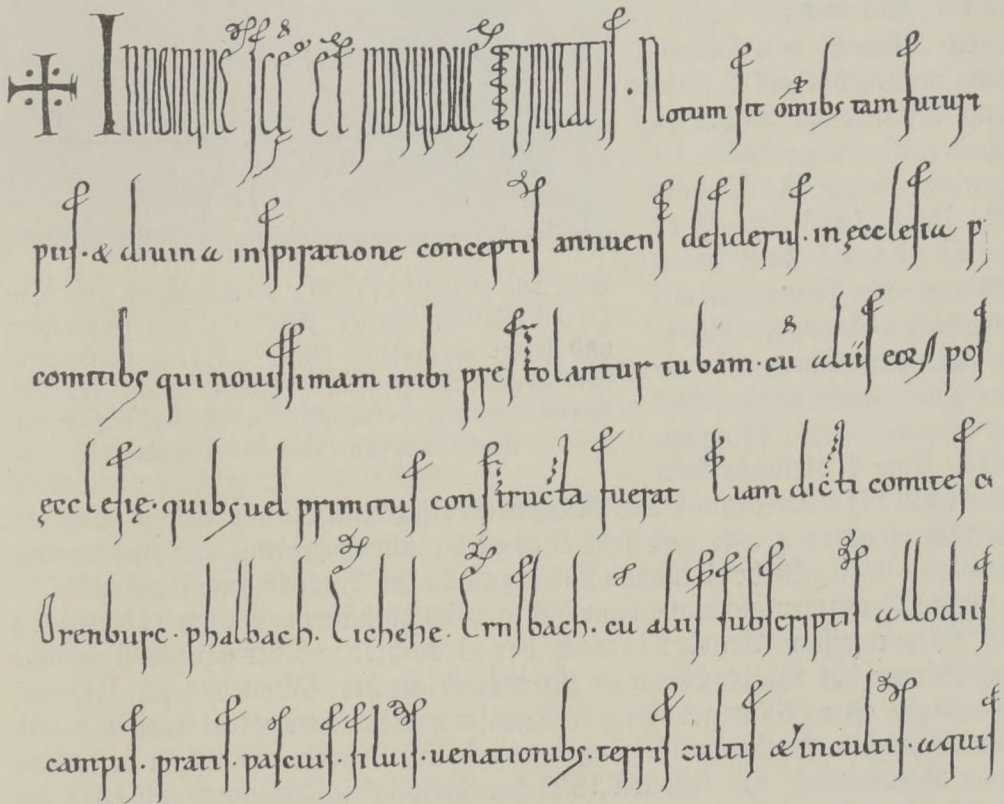 In nomine sc̄ę et indiuiduę trinitatis. Notum sit om̄ib; tam futuri
piis. & diuina inspiratione conceptis annuens desideriis. in ęcclesia
comitib; qui nouissimam inibi prestolantur tubam. cū aliis eorꝝ
ęcclesię. quib; uel primitus constructa fuerat Iam dicti comites
Orenburc. phalbach. Eichehe. Ernsbach. cū aliis subscriptis allodiis
campis. pratis. pascuis. siluis. uenationib;. terris cultis & incultis. aquis